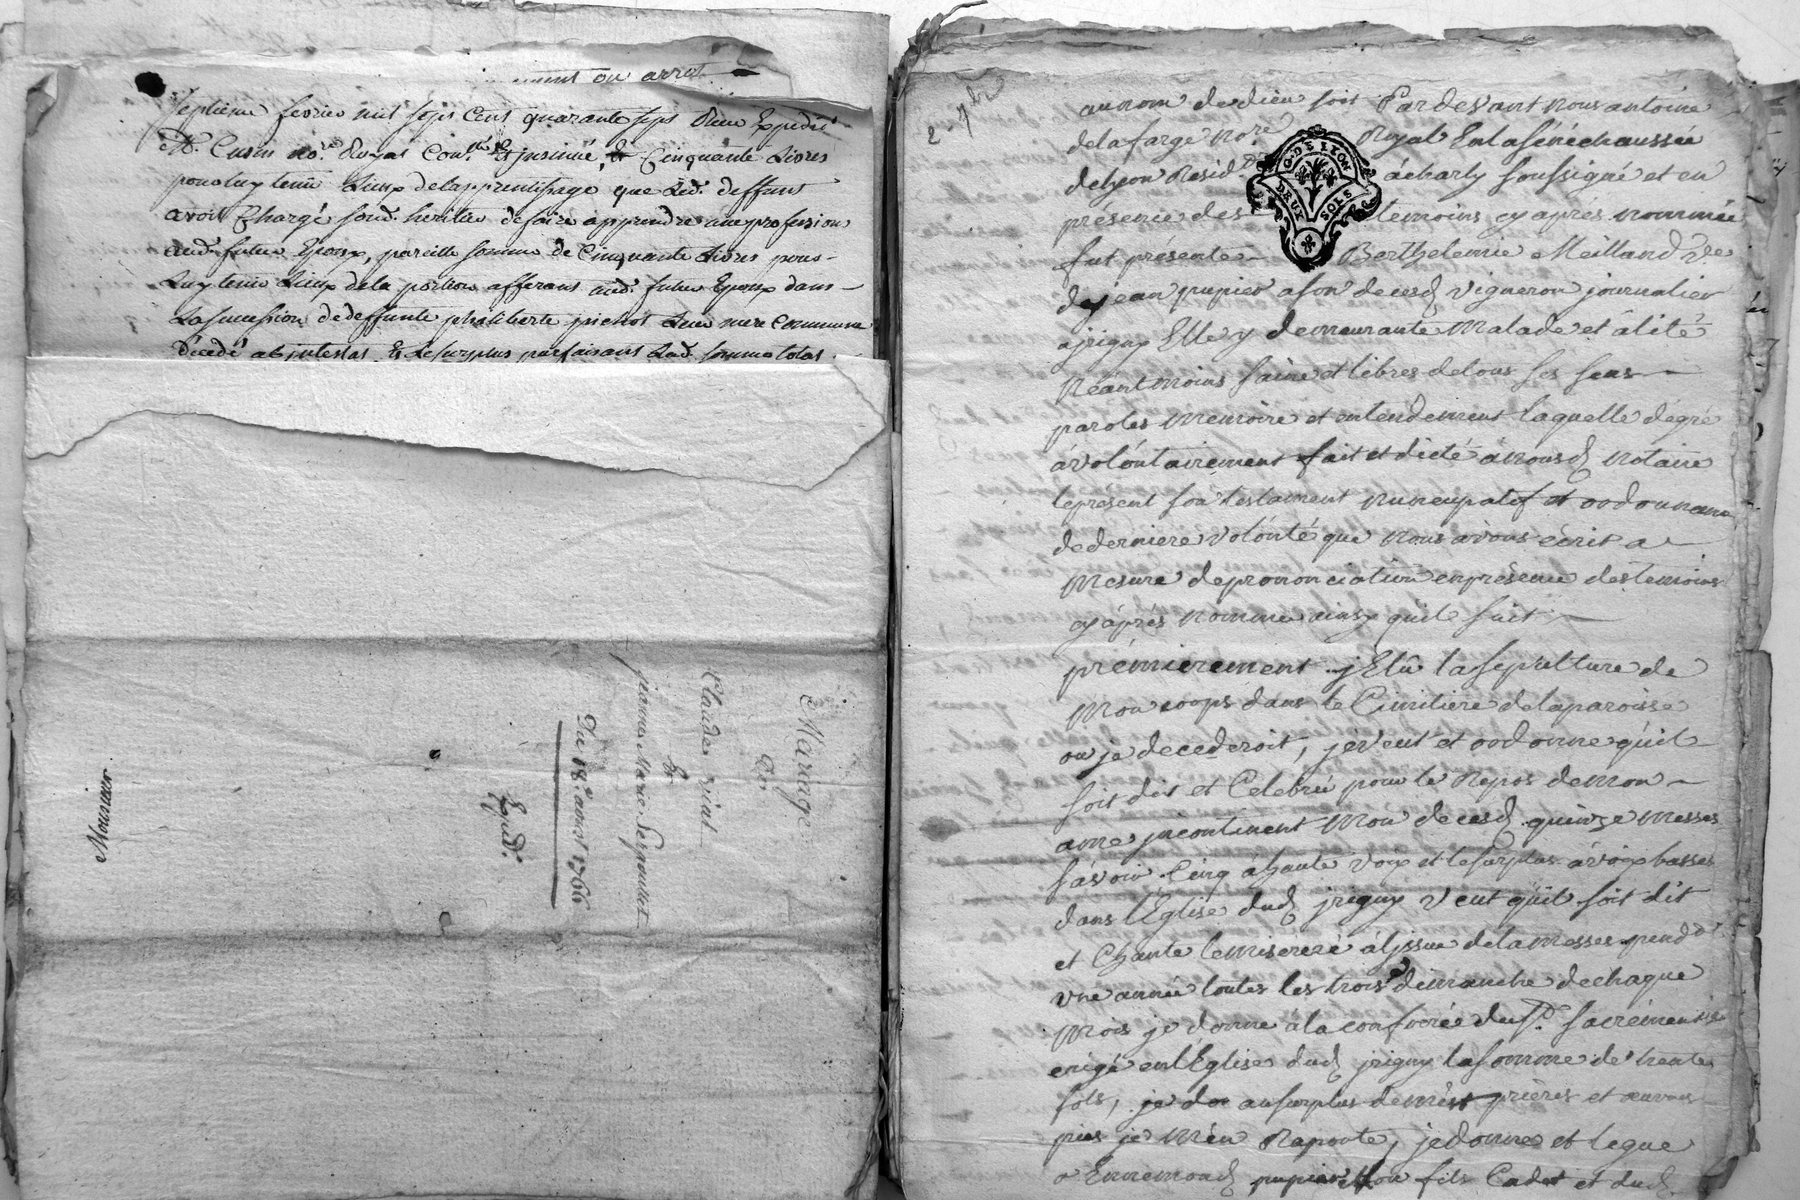 ou arrot
septieme fevrier mil sept cent quarante sept Duem Expedié
Me. Cusin no.re Royal Con.lé & jnsinué, & Cinquante Livres
pour luy tenir Lieux delapprentissage, que Led. deffunt
avoit Chargé sond. heritier de faire apprendre une profession
aud. futur Epoux, pareille somme de Cinquante Livres pour
Luy tenir Lieux de la portion afferant aud. futur Epoux dans
La succession de deffunte philiberte pichot Leur mere Commune
décédé abjntestat, & Le surplus parfaisant Lad. somme totas
Mariage
De
Claude
&
jeanne Marie
Du 18.e aoust 1766
Expéd.
Monsieur
2 7bre
au nom de dieu soit Pardevant nous antoine
delafarge no.re Royal En la sénéchaussée
de Lyon Resid.t à charly soussigné et en
présence des temoins cy après nommée
fut présente Berthelemie Meilland v.ve
de jean pupier a son deced vigneron journalier
a jrigny Elle y demeurante malade et alité
Néantmoins saine et libres de tous ses sens
paroles memoire et entendement laquelle dégré
à volontairement fait et dicté à nousd notaire
le present son testament nuncupatif et ordonnance
de derniere volonté que nous avons écrit a
mesure de prononciation en présence des temoins
cy après nommé ainsy qu'il suit
prémierement j'Elû la sepulture de
mon corps dans le Cimitiere de la paroisse
ou je decederoit, je veut et ordonne qu'il
soit dit et Celebré pour le Repos de mon
ame jncontinent mon deced quinze messes
sàvoir Cinq à haute voix et le surplus à voix basses
dans l'Eglise dud jrigny veut qu'il soit dit
et Chante le miséréré à l'jssue de la messes pend.t
une année toutes les trois.e dimanche de chaque
mois je donne a la confrérie du St. sacrément
erigé en l'Eglise dud jrigny la somme de trente
sols, je d au surplus de mes prières et œuvres
pies je m'en Raporte, je donne et legue
a Ennemond pupier mon fils Cadet et dud